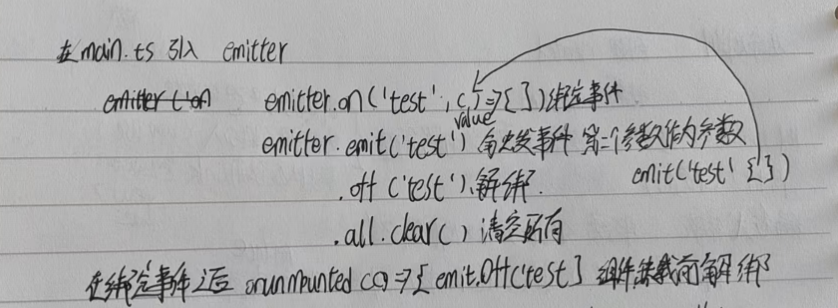 在main.ts 引入 emitter
emitter.on('test', (value)=>{ }) 绑定事件
emitter.emit('test') 触发事件 第二个参数作为参数
emit('test' {})
.off('test') 解绑.
.all.clear() 清空所有
在绑定事件之后 onunmounted (()=>{ emit.off('test } 组件卸载前解绑